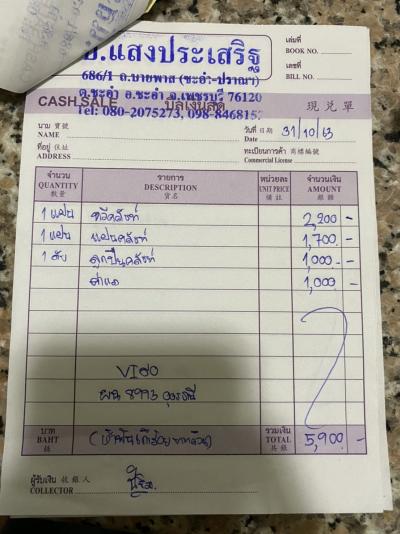 อ.แสงประเสริฐ
686/1 ถ.บายพาส (ชะอำ-ปราณฯ)
ต.ชะอำ อ.ชะอำ จ.เพชรบุรี 76120
Tel: 080-2075273, 098-846815
เล่มที่
BOOK NO.
เลขที่
BILL NO.
CASH SALE บิลเงินสด 現兌單
นาม 寶號
NAME
วันที่ 日期 31/10/63
Date
ที่อยู่ 住址
ADDRESS
ทะเบียนการค้า 商標編號
Commercial License
จำนวน รายการ หน่วยละ จำนวนเงิน
QUANTITY DESCRIPTION UNIT PRICE AMOUNT
數量 貨名 備註 銀額
1 แผ่น หวีคลัชท์ 2,200 -
1 แผ่น แผ่นคลัชท์ 1,700 -
1 ตับ ลูกปืนคลัชท์ 1,000 -
ค่าแรง 1,000 -
VIGO
ผน 8993
บาท (ห้าพันเก้าร้อยบาทถ้วน) รวมเงิน 5,900 -
BAHT TOTAL
銖 共銀
ผู้รับเงิน 收銀人
COLLECTOR